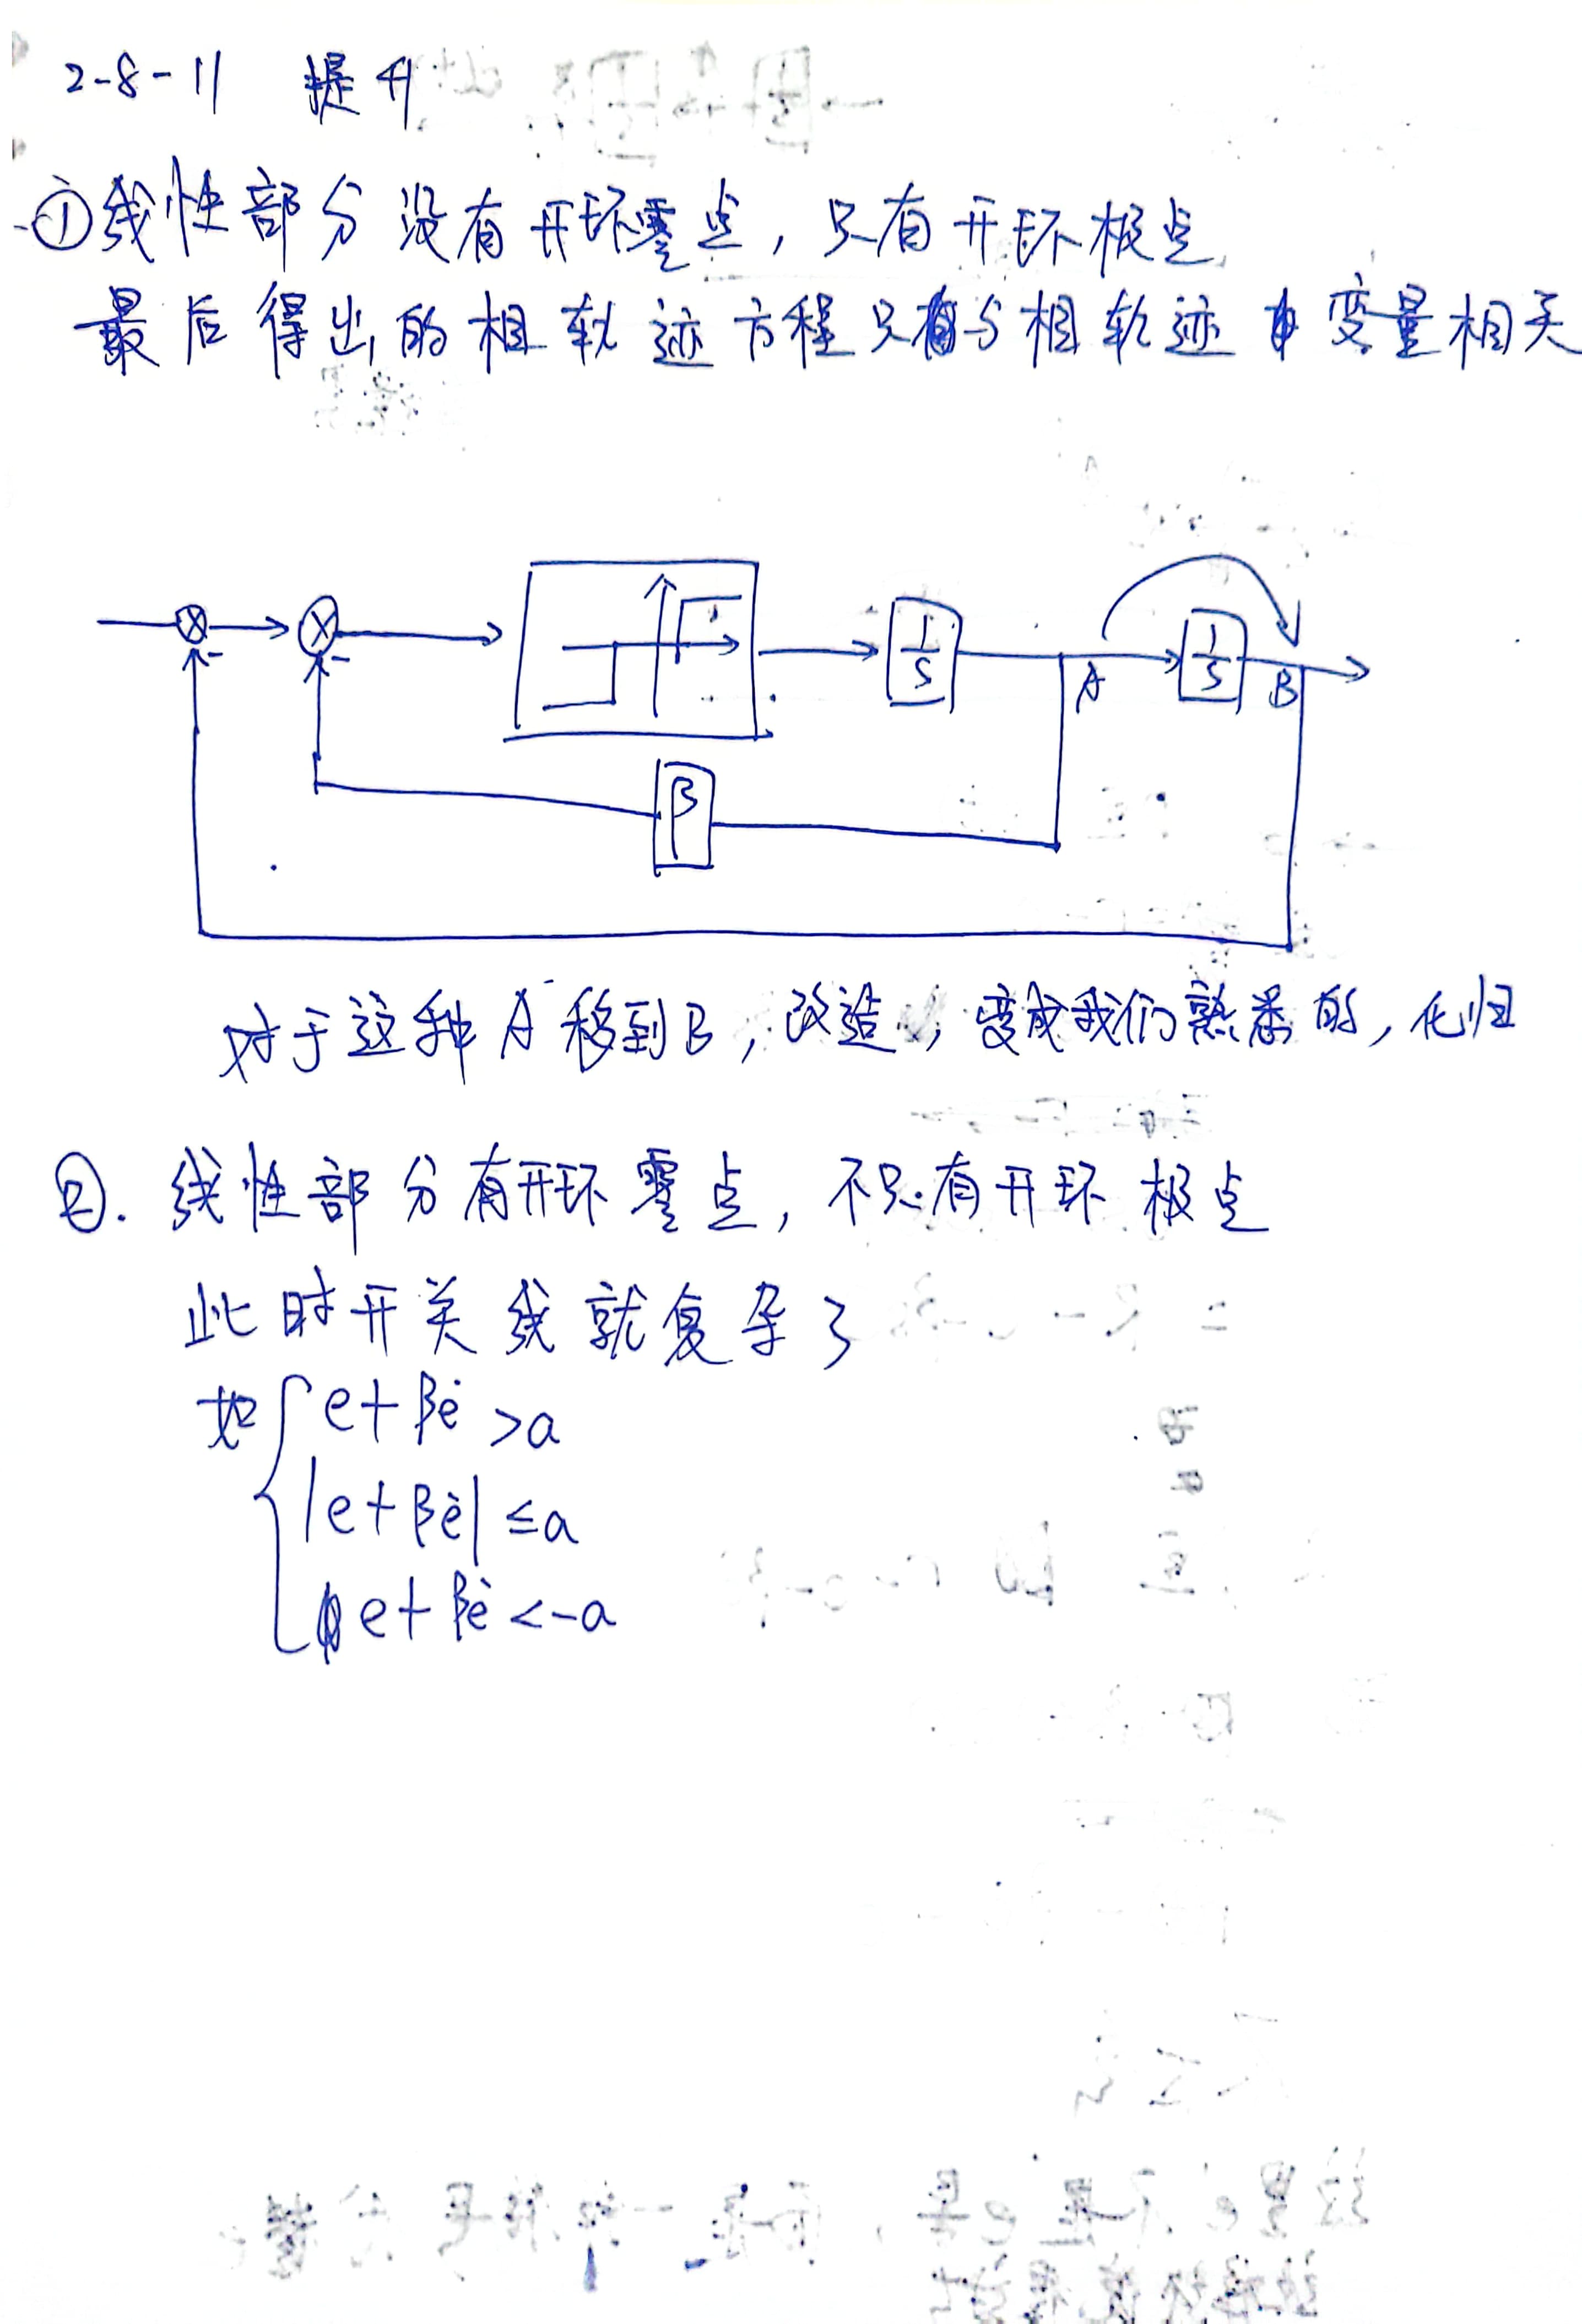 2-8-11 提升
①线性部分没有开环零点，只有开环极点
最后得出的相轨迹方程只与相轨迹中变量相关
- -
1/s A 1/s B
β
对于这种A移到B，改造，变成我们熟悉的，化归
②. 线性部分有开环零点，不只有开环极点
此时开关线就复杂了
如 e+βė >a
|e+βė| ≤a
e+βė <-a